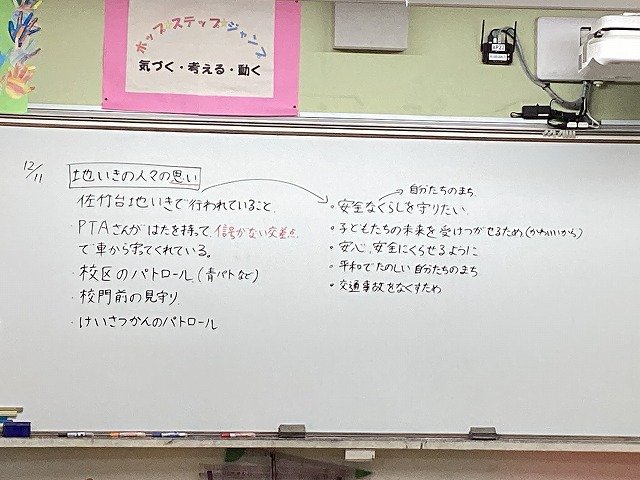 ホップ ステップ ジャンプ
気づく・考える・動く
12/11
地いきの人々の思い
佐竹台地いきで行われていること
・PTAさんがはたを持って信号がない交差点
で車から守ってくれている。
・校区のパトロール(青パトなど)
・校門前の見守り
・けいさつかんのパトロール
自分たちのまち
・安全なくらしを守りたい
・子どもたちの未来を受けつがせるため(かわいいから)
・安心、安全にくらせるように
・平和でたのしい自分たちのまち
・交通事故をなくすため